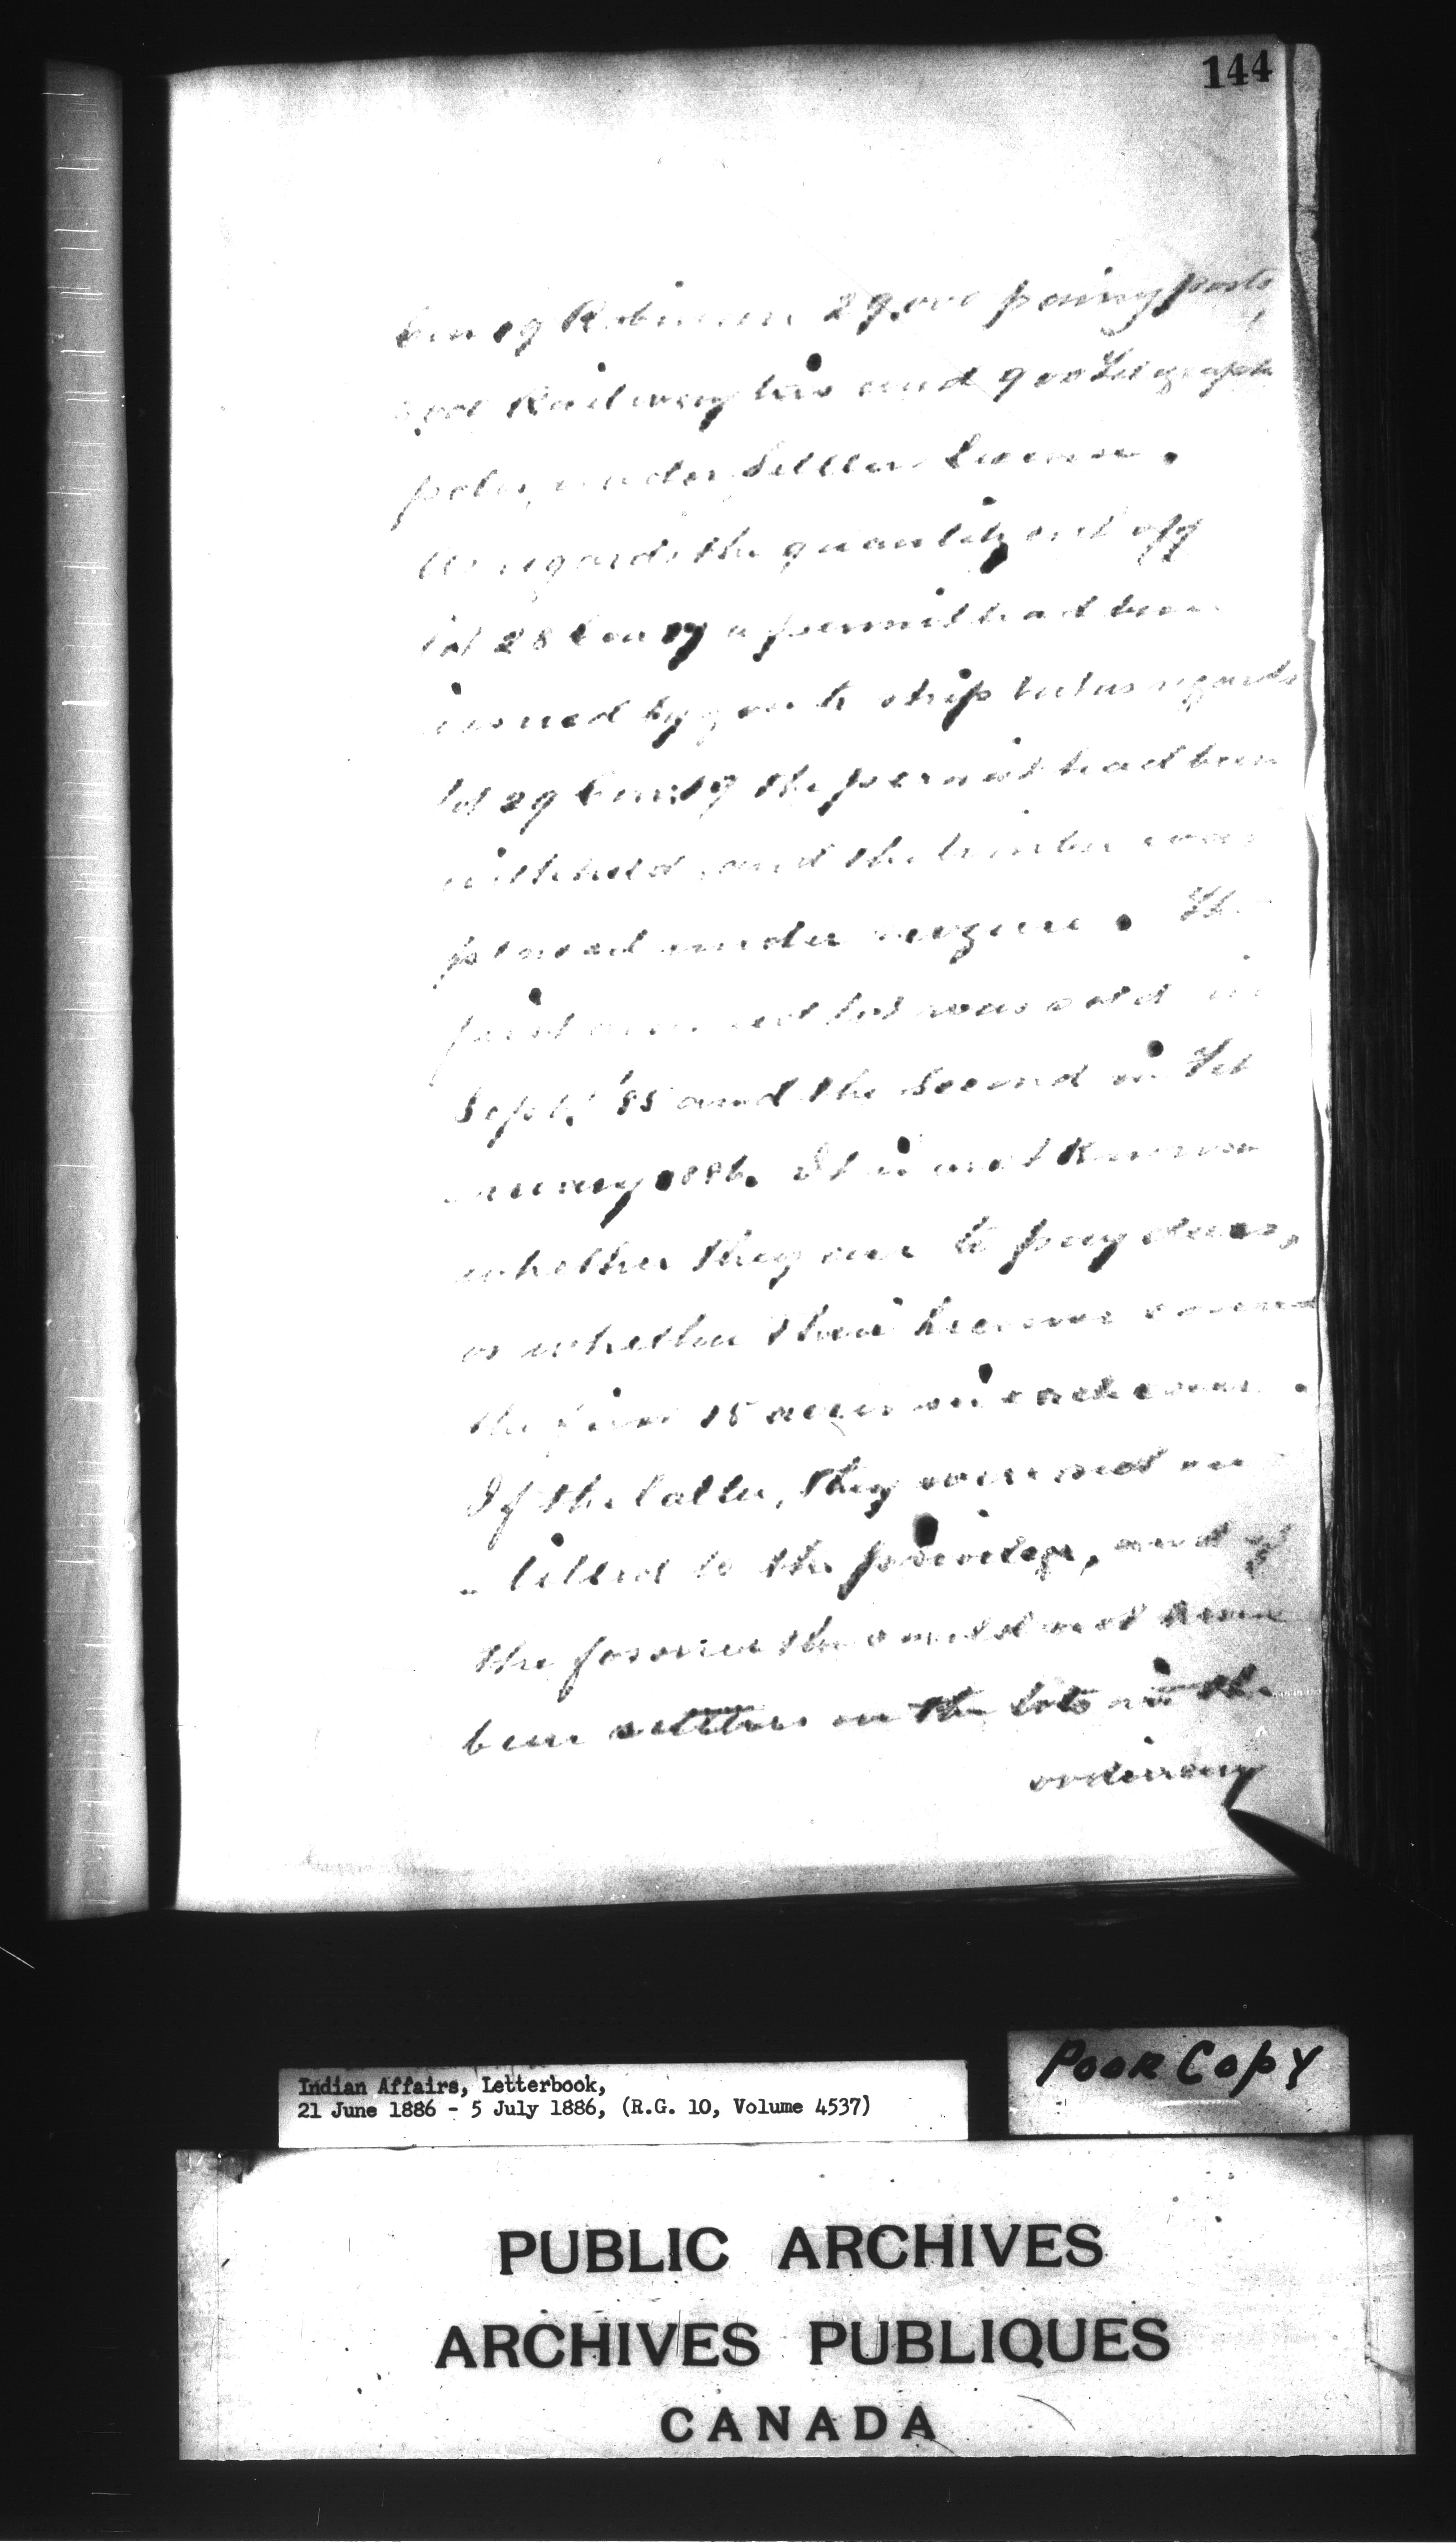 144
Con 19 Robinson 29,000 paving posts,
Railway ties and 900 Telegraph
poles, under Settlers License.
As regards the quantity cut off
lot 28 Con 19 a permit had been
issued by you to ship but as regards
lot 29 Con 19 the permit had been
withheld, and the timber was
placed under seizure. The
first named lot was sold in
Sept. '85 and the second in Feb
ruary 1886. It is not known
whether they are to pay dues,
or whether their license covered
the first 15 acres in each case.
If the latter, they were not en
-titled to the privilege, and if
the former they could not have
been settlers on the lots in the
ordinary
Indian Affairs, Letterbook,
21 June 1886 - 5 July 1886, (R.G. 10, Volume 4537)
POOR COPY
PUBLIC ARCHIVES
ARCHIVES PUBLIQUES
CANADA